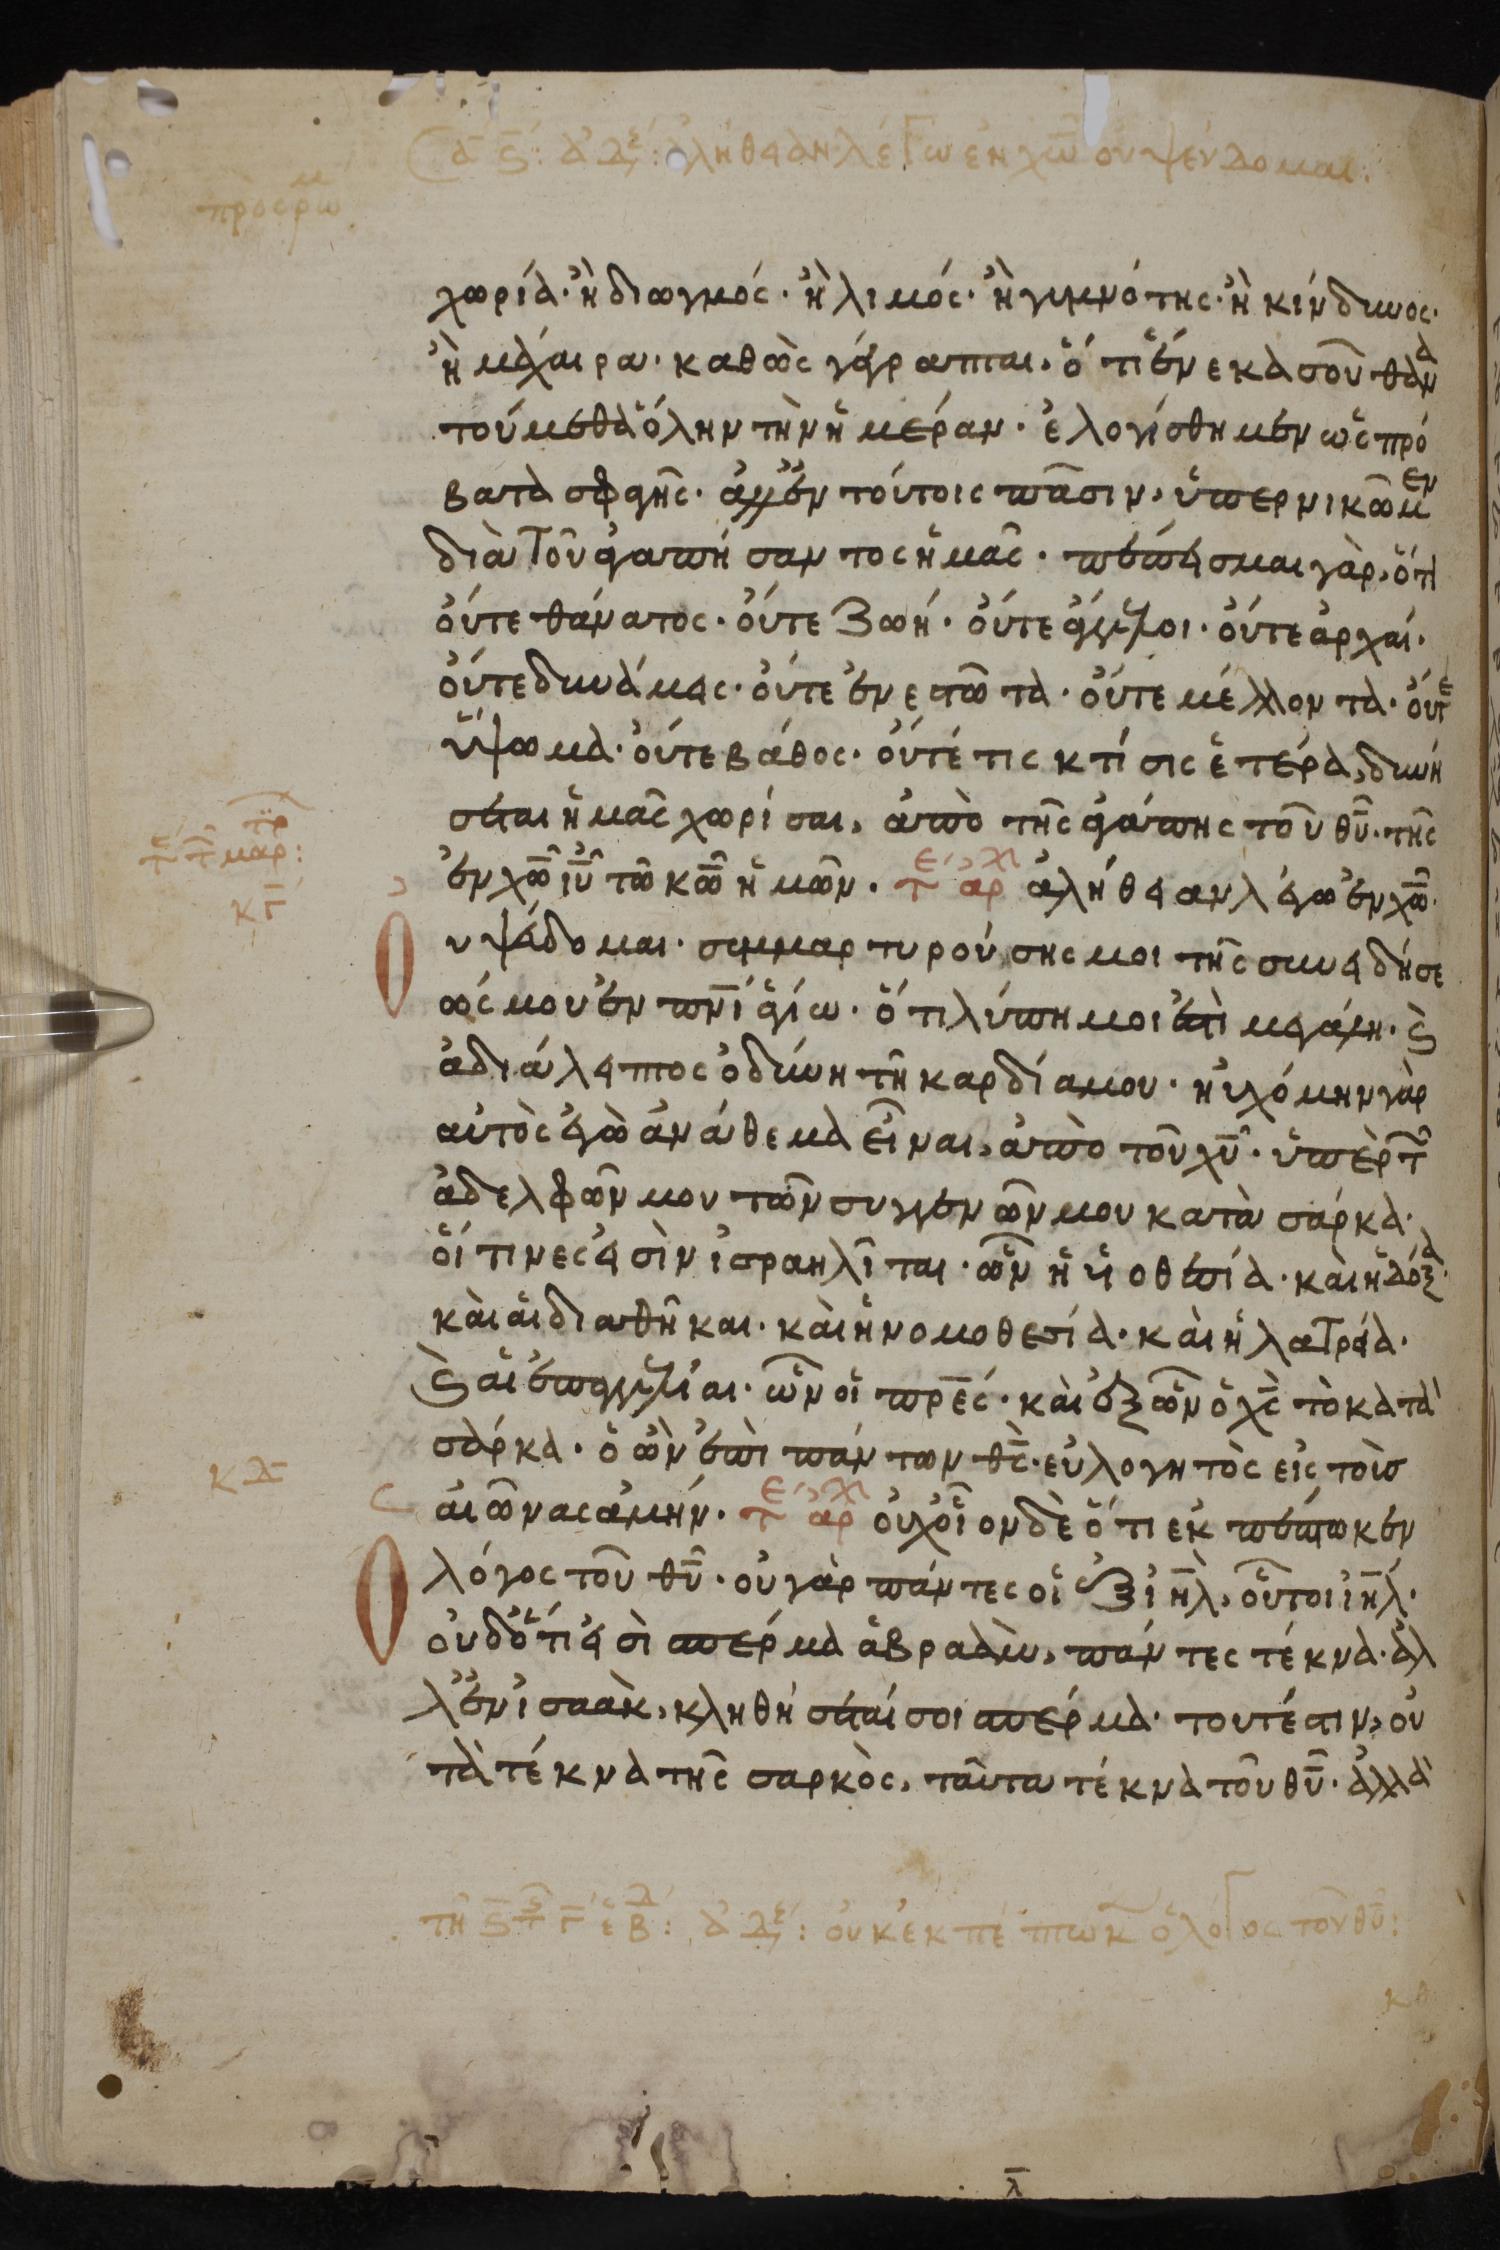 α ϛ: ἀδξ: ἀλήθειαν λέγω ἐν χω οὐ ψεύδομαι:
πρὸς ρωμ
χωρία· ἢ διωγμός· ἢ λιμός· ἢ γυμνότης· ἢ κίνδυνος·
ἢ μάχαιρα· καθὼς γέγραπται, ὅτι ἕνεκα σοῦ θανα
τούμεθα ὅλην τὴν ἡμέραν· ἐλογίσθημεν ὡς πρό
βατα σφαγῆς· ἀλλ' ἐν τούτοις πᾶσιν, ὑπερνικῶμεν
διὰ τοῦ ἀγαπήσαντος ἡμᾶς· πέπεισμαι γὰρ, ὅτι
οὔτε θάνατος· οὔτε ζωή· οὔτε ἄγγελοι· οὔτε ἀρχαί·
οὔτε δυνάμεις· οὔτε ἐνεστῶτα· οὔτε μέλλοντα· οὔτε
ὕψωμα· οὔτε βάθος· οὔτέ τις κτίσις ἑτέρα, δυνή
σεται ἡμᾶς χωρίσαι, ἀπὸ τῆς ἀγάπης τοῦ θυ· τῆς
τῶν μαρ:
ἐν χω ιυ τῶ κω ἡμῶν· τε αρχ ἀλήθειαν λέγω ἐν χω·
κγ
Ο
υ ψεύδομαι· συμμαρτυρούσης μοι τῆς συνειδήσε
ώς μου ἐν πνι ἁγίω· ὅτι λύπη μοι ἐστὶ μεγάλη· ϗ
ἀδιάλειπτος ὀδύνη τῆ καρδία μου· ηὐχόμην γὰρ
αὐτὸς ἐγὼ ἀνάθεμα εἶναι, ἀπὸ τοῦ χυ· ὑπὲρ τῶν
ἀδελφῶν μου τῶν συγγενῶν μου κατὰ σάρκα·
οἵτινες εἰσὶν ἰσραηλῖται· ὧν ἡ υἱοθεσία· καὶ ἡ δόξα·
καὶ αἱ διαθῆκαι· καὶ ἡ νομοθεσία· καὶ ἡ λατρεία·
ϗ αἱ ἐπαγγελίαι· ὧν οἱ πρες· καὶ ἐξ ὧν ὁ χς τὸ κατὰ
σάρκα· ὁ ὢν ἐπὶ πάντων θς· εὐλογητὸς εἰς τοὺς
κδ
αἰῶνας ἀμήν· τε αρχ οὐχ' οἷον δὲ ὅτι ἐκπέπτωκεν
Ο
λόγος τοῦ θυ· οὐ γὰρ πάντες οἱ ἐξ ιηλ, οὗτοι ιηλ·
οὐδ' ὅτι εἰσὶ σπέρμα ἀβραὰμ, πάντες τέκνα· ἀλ
λ' ἐν ἰσαὰκ, κληθήσεταί σοι σπέρμα· τουτέστιν, οὐ
τὰ τέκνα τῆς σαρκὸς, ταῦτα τέκνα τοῦ θυ· ἀλλὰ
τῆ ϛ τ γ ἑβδ: ἀδξ: οὐκ ἐκπέπτωκ ὁ λόγος τοῦ θυ:
κθ
λ